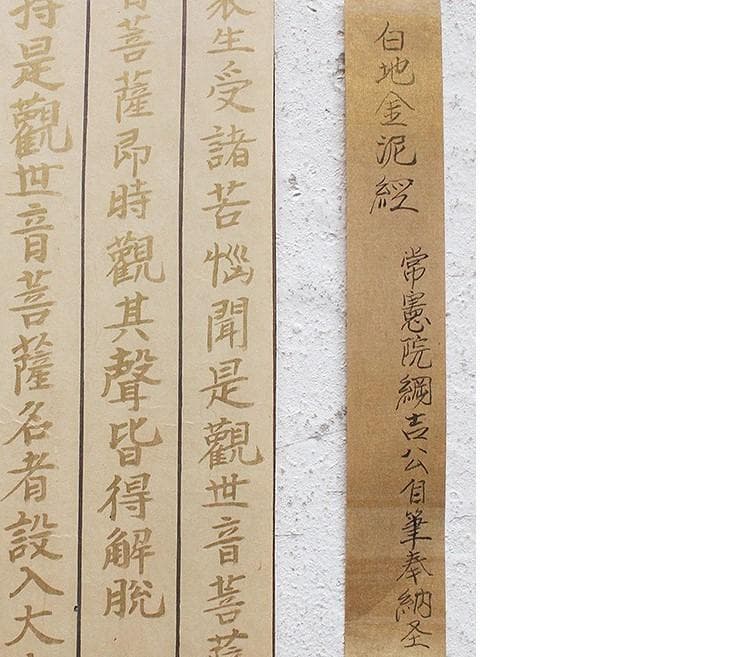 白地金泥經 常憲院綱吉公自筆奉納圣
生受諸苦惱聞是觀世音菩薩
音菩薩即時觀其聲皆得解脫
持是觀世音菩薩名者設入大